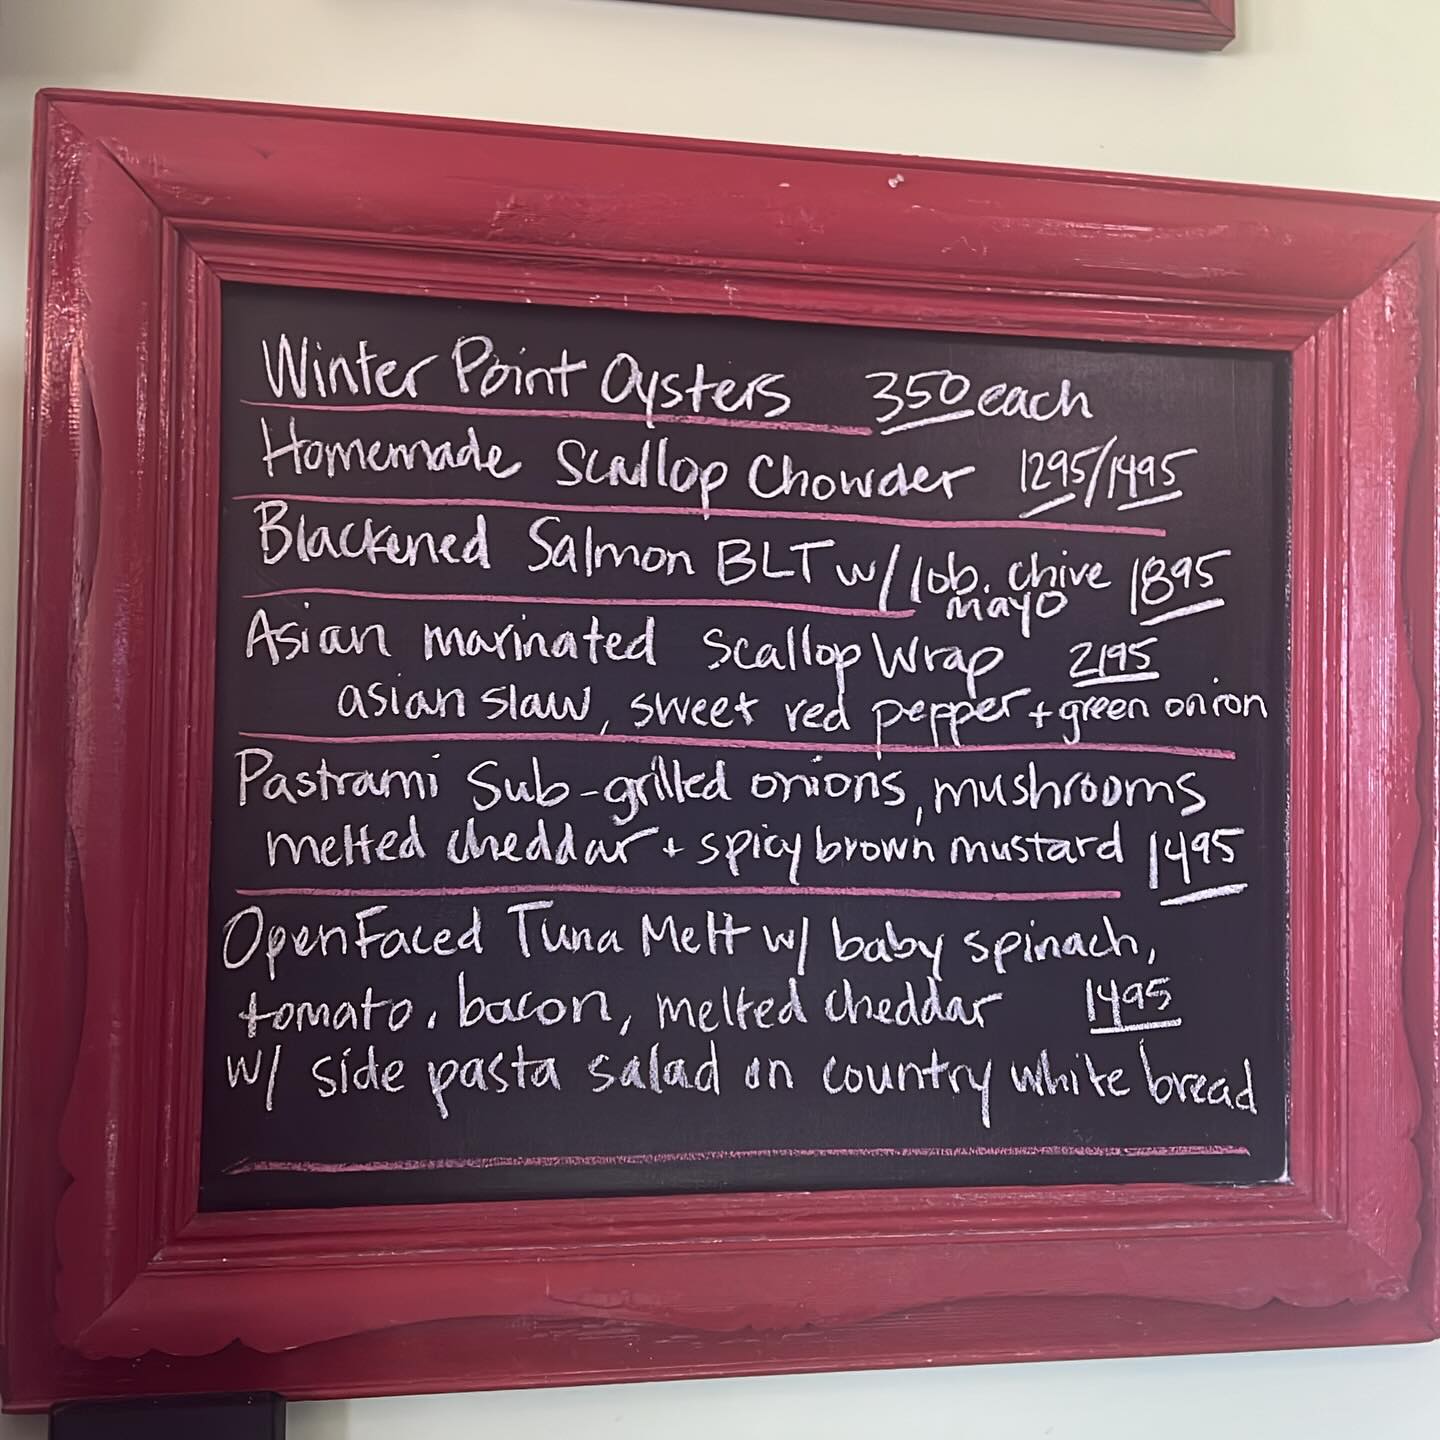 Winter Point Oysters 350 each
Homemade Scallop Chowder 1295/1495
Blackened Salmon BLT w/ lob. chive mayo 1895
Asian marinated scallop Wrap 2195
asian slaw, sweet red pepper + green onion
Pastrami Sub - grilled onions, mushrooms
melted cheddar + spicy brown mustard 1495
Open Faced Tuna Melt w/ baby spinach,
tomato, bacon, melted cheddar 1495
w/ side pasta salad on country white bread